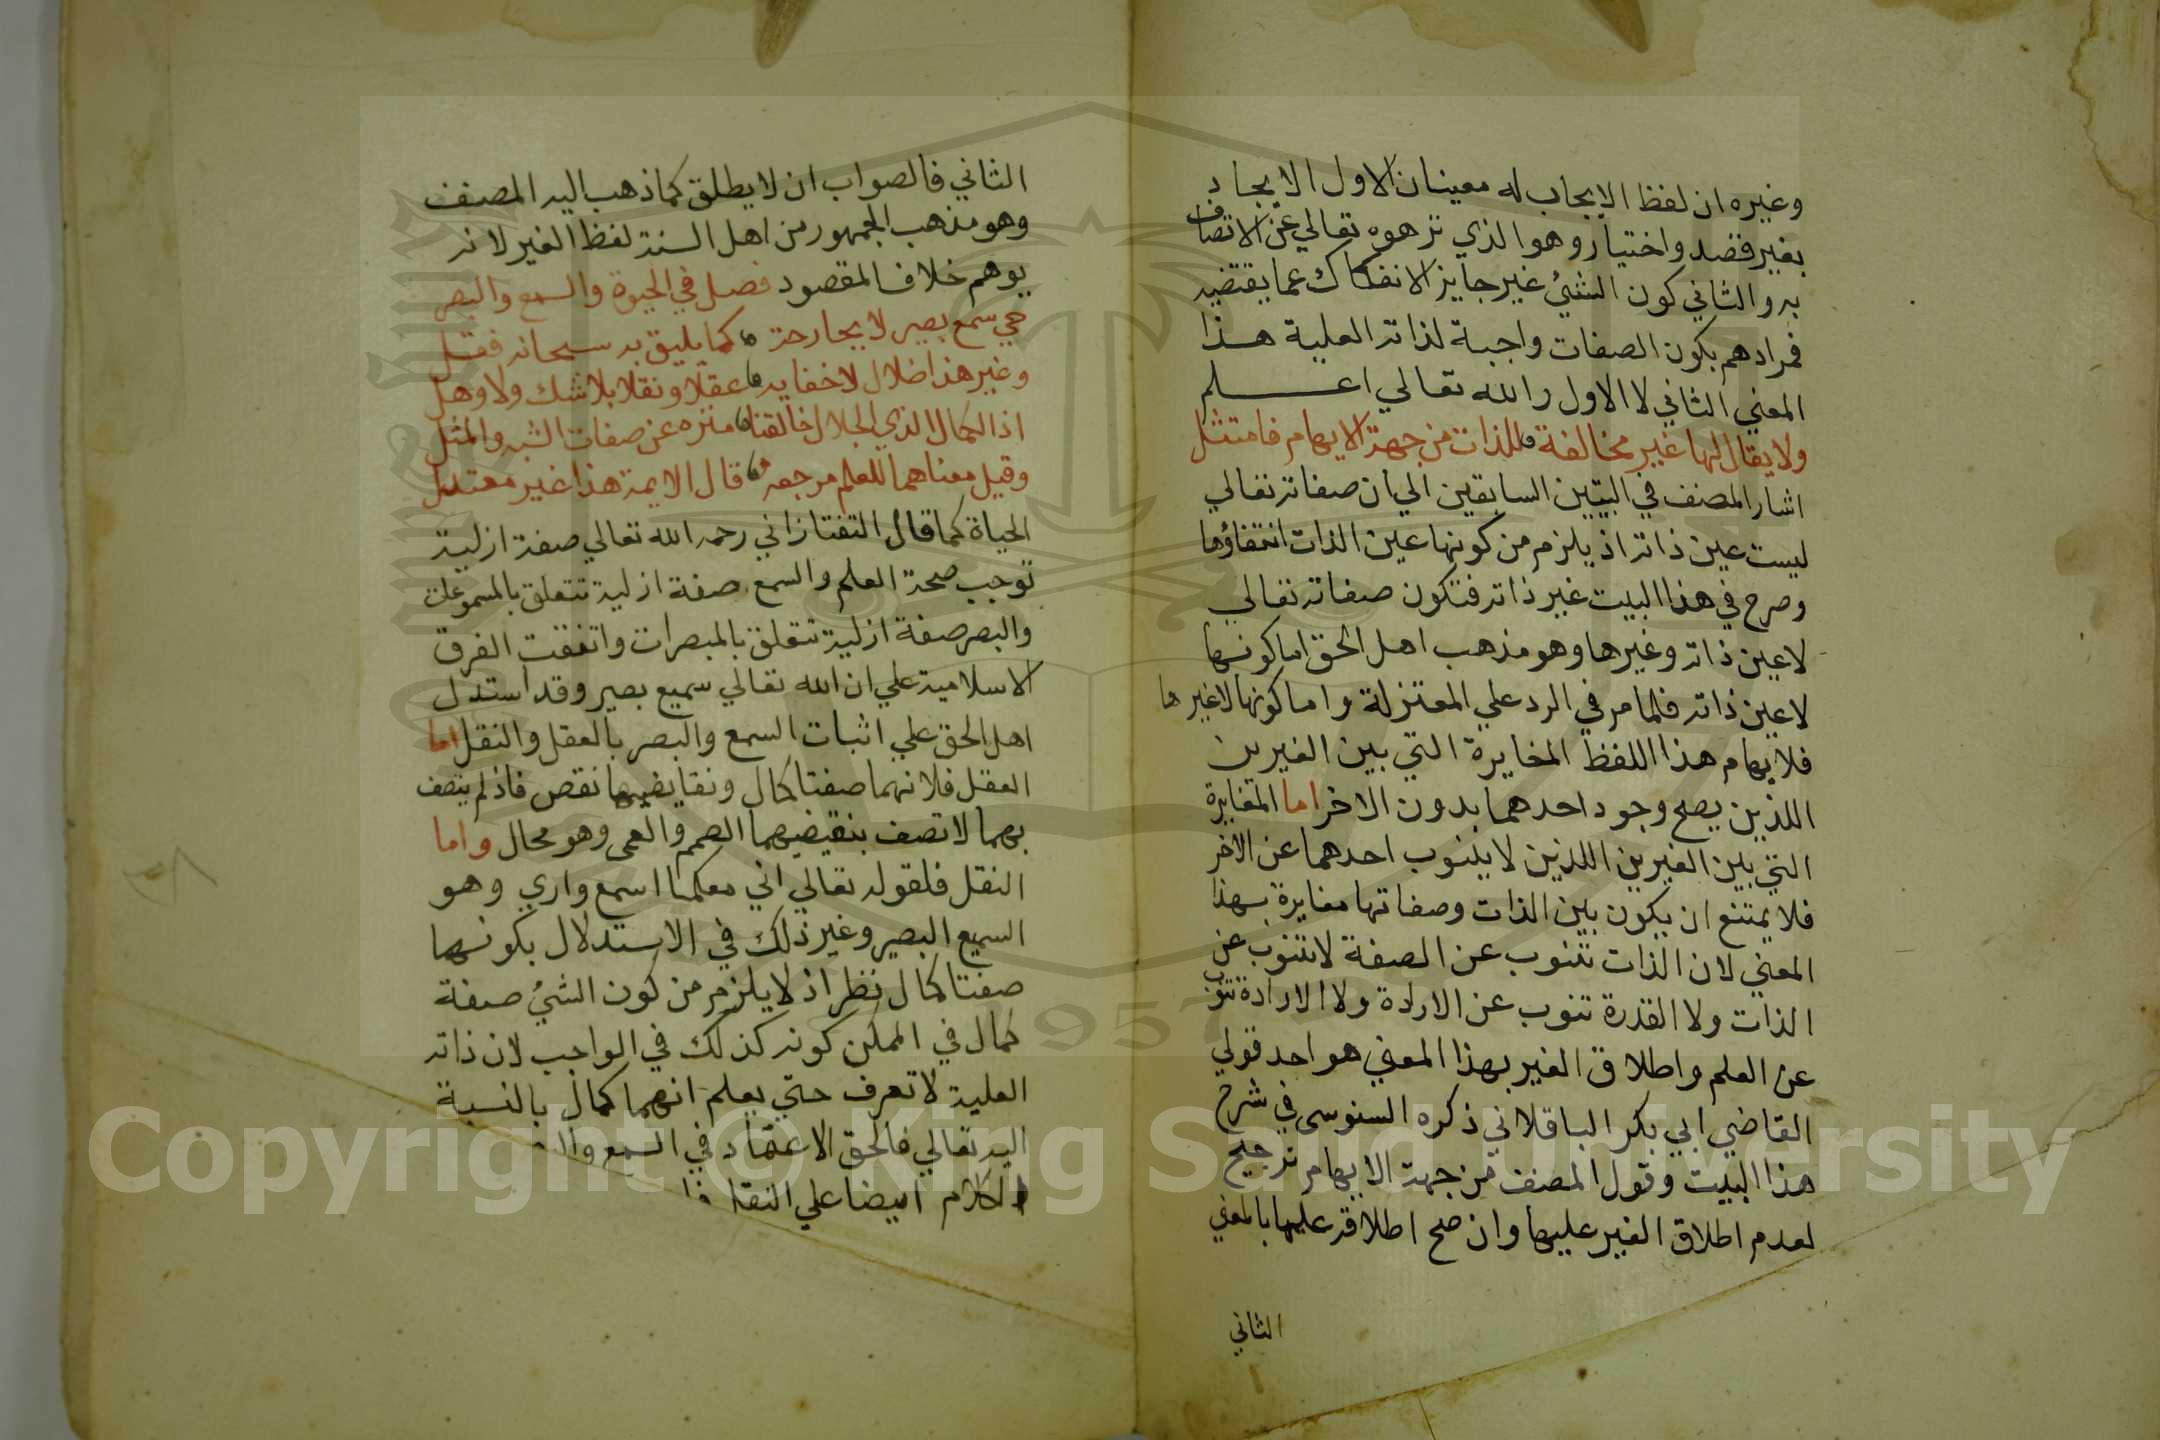 وغيره ان لفظ الايجاب له معينان الاول الايجاد
بغير قصد واختيار وهو الذي نزهوه تعالي عن الاتصاف
به والثاني كون الشئ غير جايز الانفكاك عما يقتضيه
فمرادهم بكون الصفات واجبة لذاته العلية هذا
المعني الثاني لا الاول والله تعالي اعلم
ولا يقال لها غير مخالفة للذات من جهة الايهام فامتثل
اشار المصنف في البيتين السابقين الي ان صفاته تعالي
ليست عين ذاته اذ يلزم من كونها عين الذات انتفاؤها
وصرح في هذا البيت غير ذاته فتكون صفاته تعالي
لا عين ذاته وغيرها وهو مذهب اهل الحق اما كونها
لا عين ذاته فلما مر في الرد علي المعتزلة واما كونها لا غيرها
فلايهام هذا اللفظ المغايرة التي بين الغيرين
اللذين يصح وجود احدهما بدون الاخر اما المغايرة
التي بين الغيرين اللذين لا ينوب احدهما عن الاخر
فلا يمتنع ان يكون بين الذات وصفاتها مغايرة بهذا
المعني لان الذات تنوب عن الصفة لا تنوب عن
الذات ولا القدرة تنوب عن الارادة ولا الارادة تنوب
عن العلم واطلاق الغير بهذا المعني هو احد قولي
القاضي ابي بكر الباقلاني ذكره السنوسى في شرح
هذا البيت وقول المصنف من جهة الايهام ترجيح
لعدم اطلاق الغير عليها وان صح اطلاقه عليها بالمعني
الثاني
الثاني فالصواب ان لا يطلق كما ذهب اليه المصنف
وهو مذهب الجمهور من اهل السنة لفظ الغير لانه
يوهم خلاف المقصود فصل في الحيوة والسمع والبصر
حي سمع بصير لا بجارحة كما يليق به سبحانه فقل
وغير هذا ضلال لا خفا به عقلا ونقلا بلا شك ولا وهل
اذ الكمال الذي الجلال خالقنا منزه عن صفات الشبه والمثل
وقيل معناهما للعلم مرجعه قال الايمة هذا غير معتدل
الحياة كما قال التفتازاني رحمه الله تعالي صفة ازلية
توجب صحة العلم والسمع صفة ازلية تتعلق بالمسموعات
والبصر صفة ازلية تتعلق بالمبصرات واتفقت الفرق
الاسلامية علي ان الله تعالي سميع بصير وقد استدل
اهل الحق علي اثبات السمع والبصر بالعقل والنقل اما
العقل فلانهما صفتا كمال ونقايضهما نقص فاذ لم يتصف
بهما لا تصف بنقيضيهما الصمم والعمى وهو محال واما
النقل فلقوله تعالي اني معكما اسمع واري وهو
السميع البصير وغير ذلك في الاستدلال بكونهما
صفتا كمال نظر اذ لا يلزم من كون الشئ صفة
كمال في الممكن كونه كذلك في الواجب لان ذاته
العلية لا تعرف حتي يعلم انهما كمال بالنسبة
اليه تعالي فالحق الاعتماد في السمع
والكلام ايضا علي النقل
Copyright © King Saud University
1957